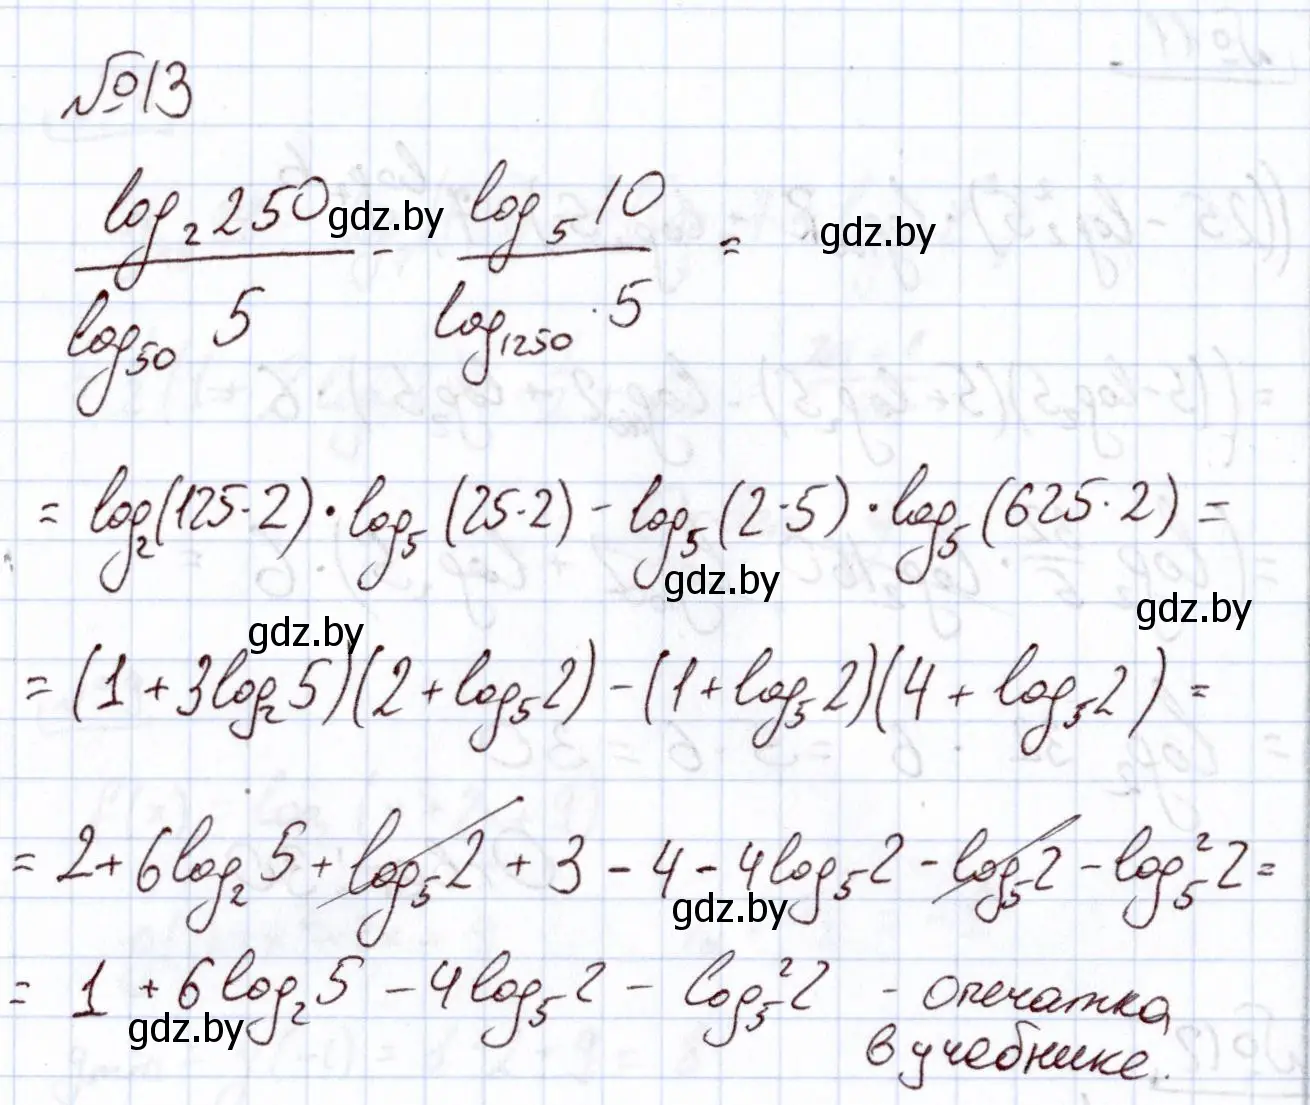 №13
log₂250 / log₅₀ 5 - log₅10 / log₁₂₅₀ · 5 =
gdz.by gdz.by
= log₂(125·2) · log₅(25·2) - log₅(2·5) · log₅(625·2) =
gdz.by gdz.by
gdz.by
= (1 + 3log₂5)(2 + log₅2) - (1 + log₅2)(4 + log₅2) =
= 2 + 6log₂5 + log₅2 + 3 - 4 - 4log₅2 - log₅2 - log₅²2 =
gdz.by
= 1 + 6log₂5 - 4log₅2 - log₅²2 - опечатка
gdz.by
в учебнике.